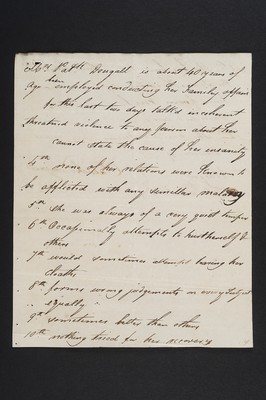 Mrs. Dougall is about 40 years of
age been employed conducting her Family affairs
for the last two days talk'd incoherent
threatned violence to any person about her
cannot state the cause of her insanity
4th none of her relations were known to
be afflicted with any similar malady
5th She was always of a very quiet temper
6th Occasionally attempts to hurt herself &
others
7th would sometimes attempt tearing her
cloaths
8th forms wrong judgements on every subject
equally
9th sometimes better than others
10th nothing tried for her recovery